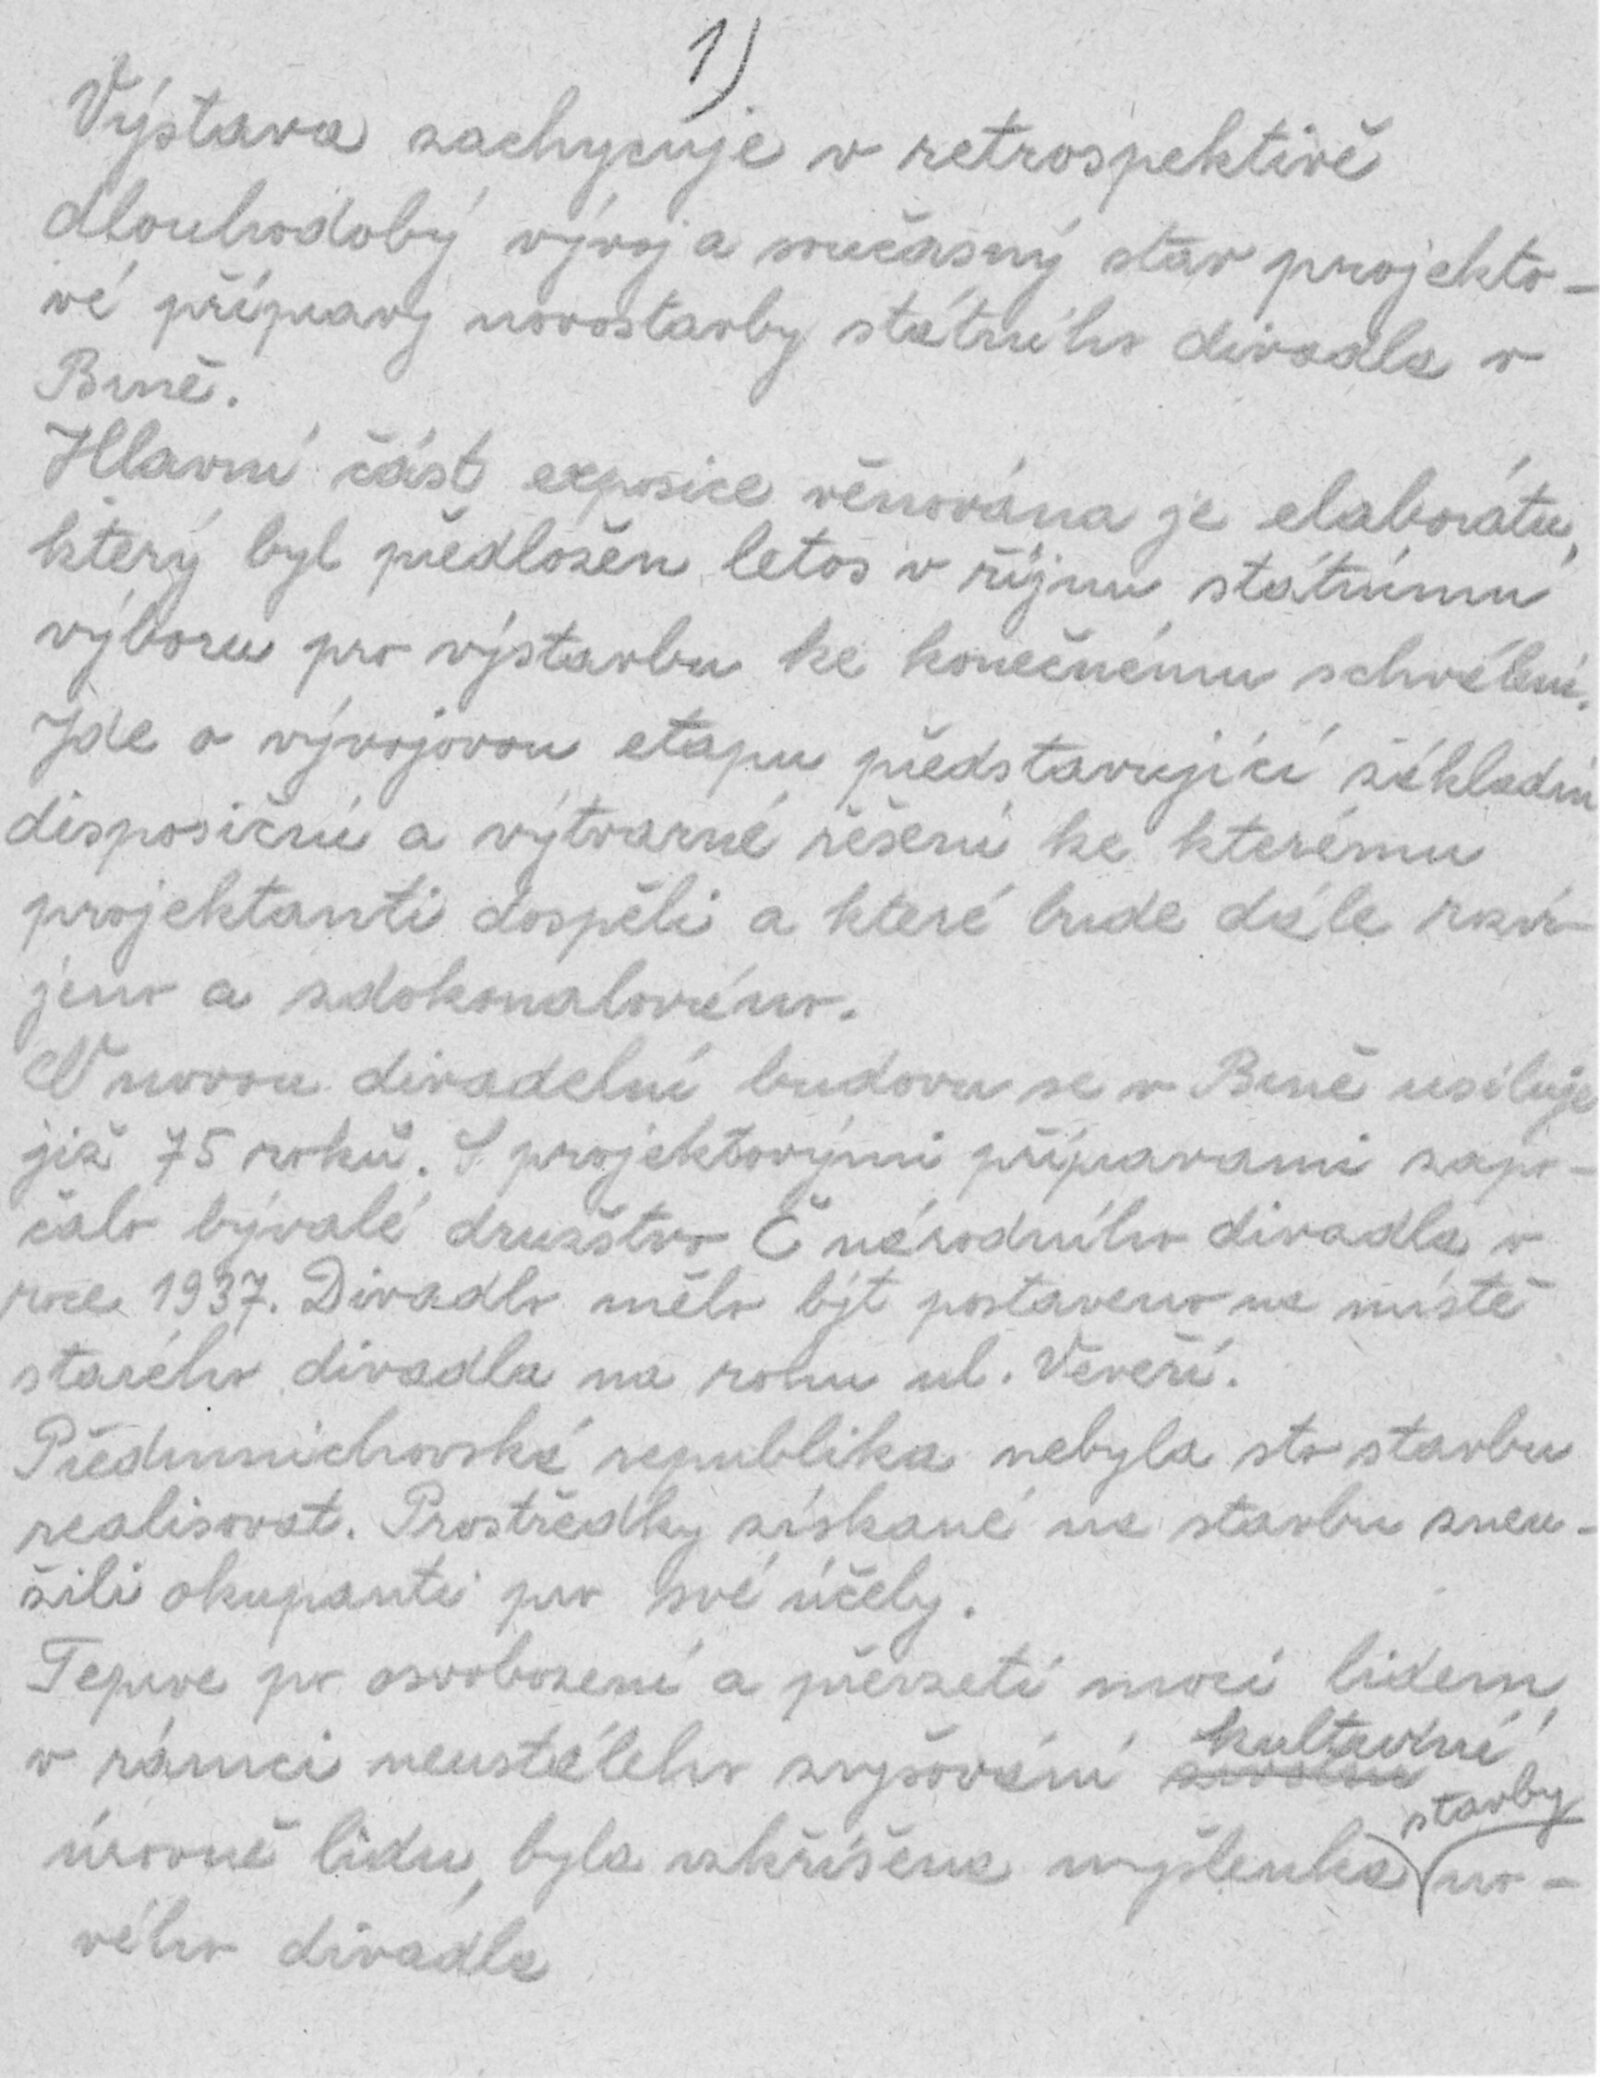 1)
Výstava zachycuje v retrospektivě
dlouhodobý vývoj a současný stav projekto-
vé přípravy novostavby státního divadla v
Brně.
Hlavní část exposice věnována je elaborátu,
který byl předložen letos v říjnu státnímu
výboru pro výstavbu ke konečnému schválení.
Jde o vývojovou etapu představující základní
disposiční a výtvarné řešení ke kterému
projektanti dospěli a které bude dále rozví-
jeno a zdokonalováno.
O novou divadelní budovu se v Brně usiluje
již 75 roků. S projektovými přípravami zapo-
čalo bývalé družstvo Č národního divadla v
roce 1937. Divadlo mělo být postaveno na místě
starého divadla na rohu ul. Veveří.
Předmnichovská republika nebyla sto stavbu
realisovat. Prostředky získané na stavbu zneu-
žili okupanti pro své účely.
Teprve po osvobození a převzetí moci lidem,
kulturní
v rámci neustálého zvyšování
stavby
úrovně lidu, byla vzkříšena myšlenka no-
vého divadla